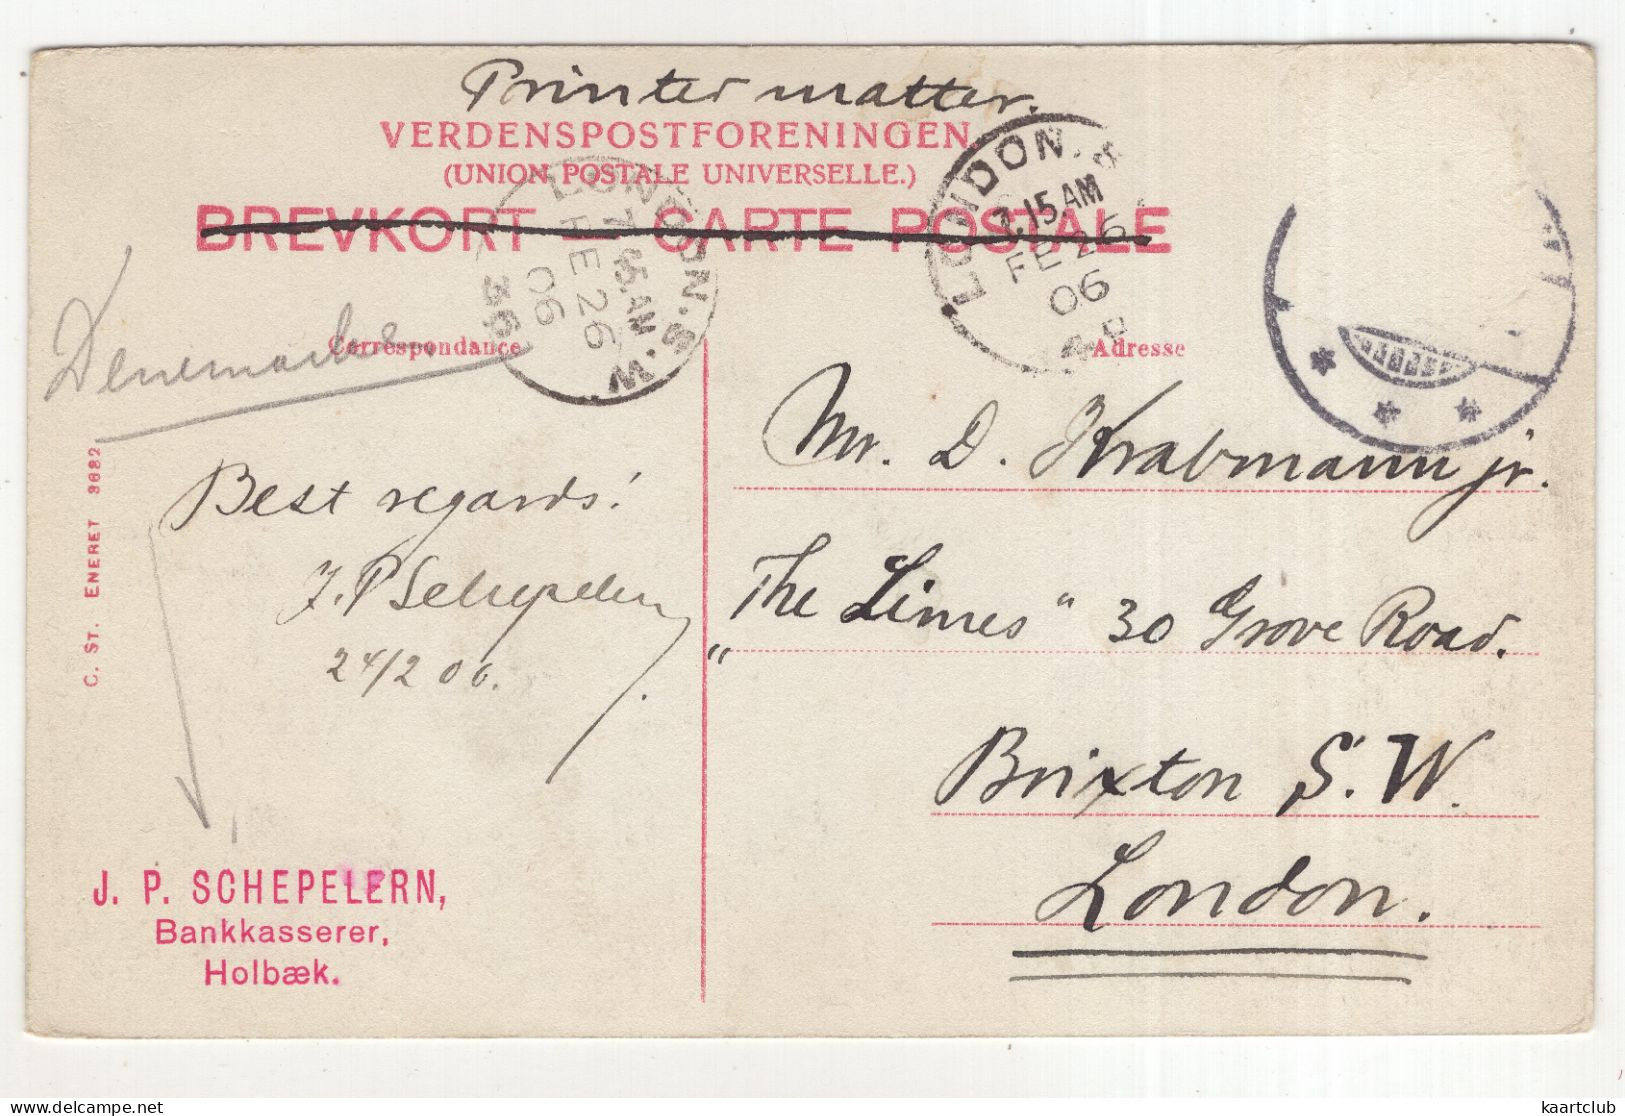 Printed matter.
VERDENSPOSTFORENINGEN.
(UNION POSTALE UNIVERSELLE.)
BREVKORT — CARTE POSTALE
LONDON. S.W
7.15.AM
FE 26
06
36
LONDON. S
7.15.AM
FE 26
06
Correspondance
Adresse
C. ST. ENERET 3682
Best regards!
J. P Schepelern
24/2 06.
J. P. SCHEPELERN,
Bankkasserer,
Holbæk.
Mr. D. Krabmann jr.
„The Limes" 30 Grove Road.
Brixton S.W.
London.
delcampe.net
kaartclub